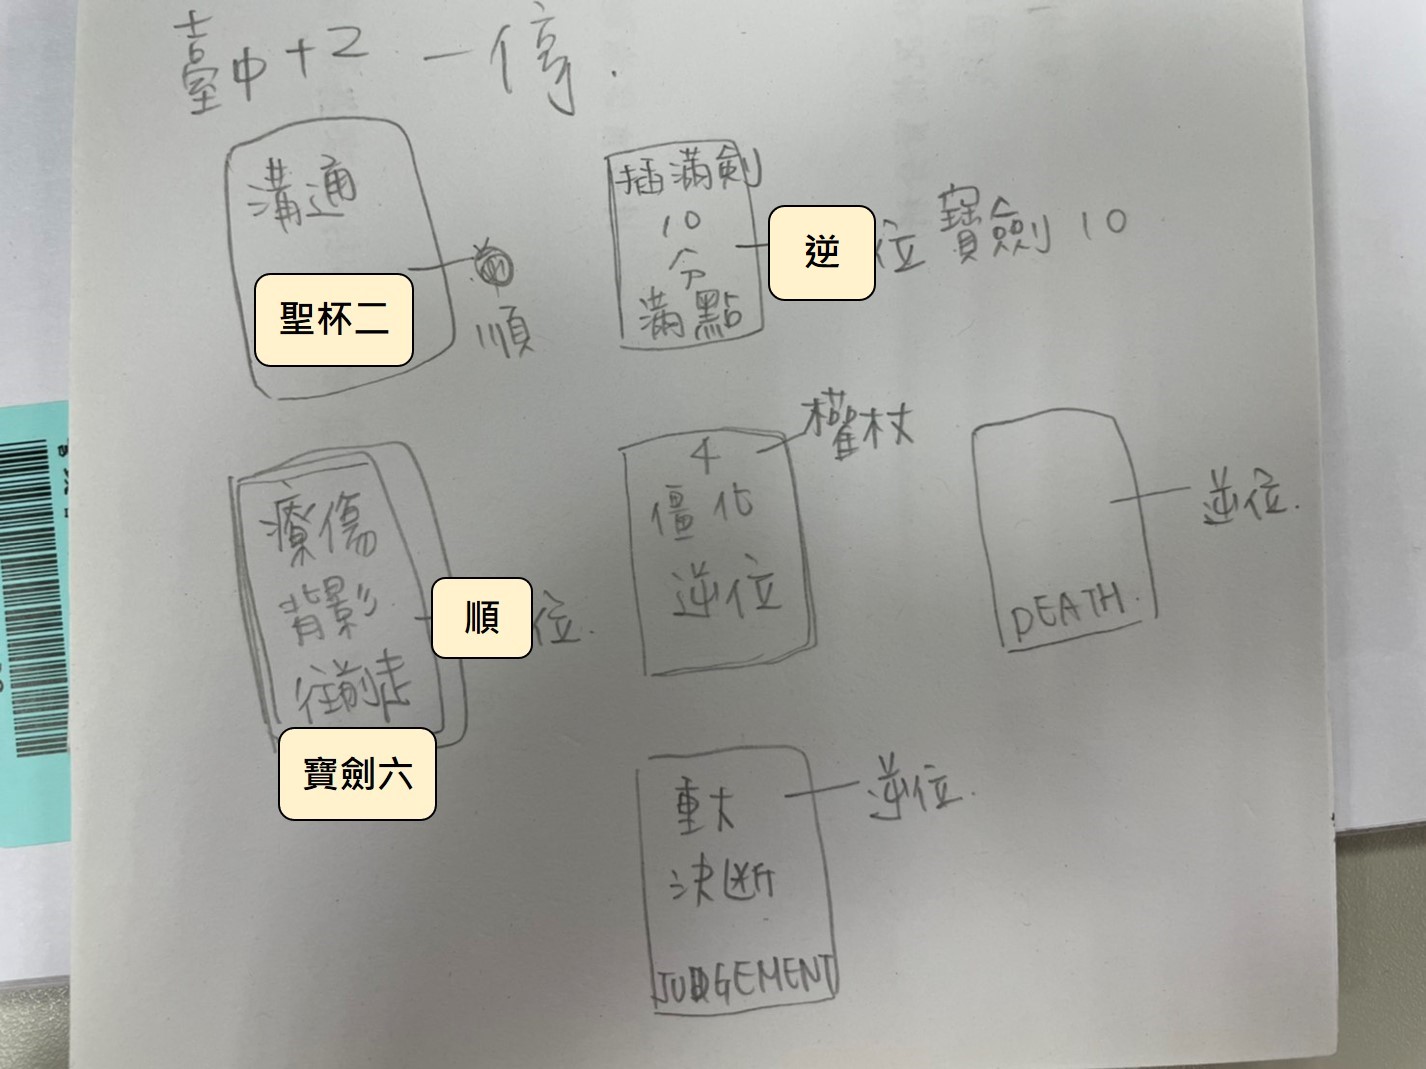 臺中+2 一停.
溝通
聖杯二
順
插滿劍
10
分
滿點
逆位 寶劍 10
療傷
背影
往前走
順位.
寶劍六
4
僵化
逆位
權杖
逆位.
DEATH.
重大
決断
JUDGEMENT
逆位.